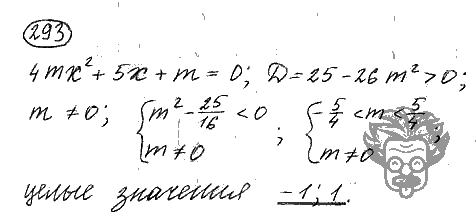 293
4mx² + 5x + m = 0; D = 25 - 26m² > 0;
m ≠ 0; { m² - 25/16 < 0 m ≠ 0 ; { -5/4 < m < 5/4 m ≠ 0 ;
целые значения -1; 1.